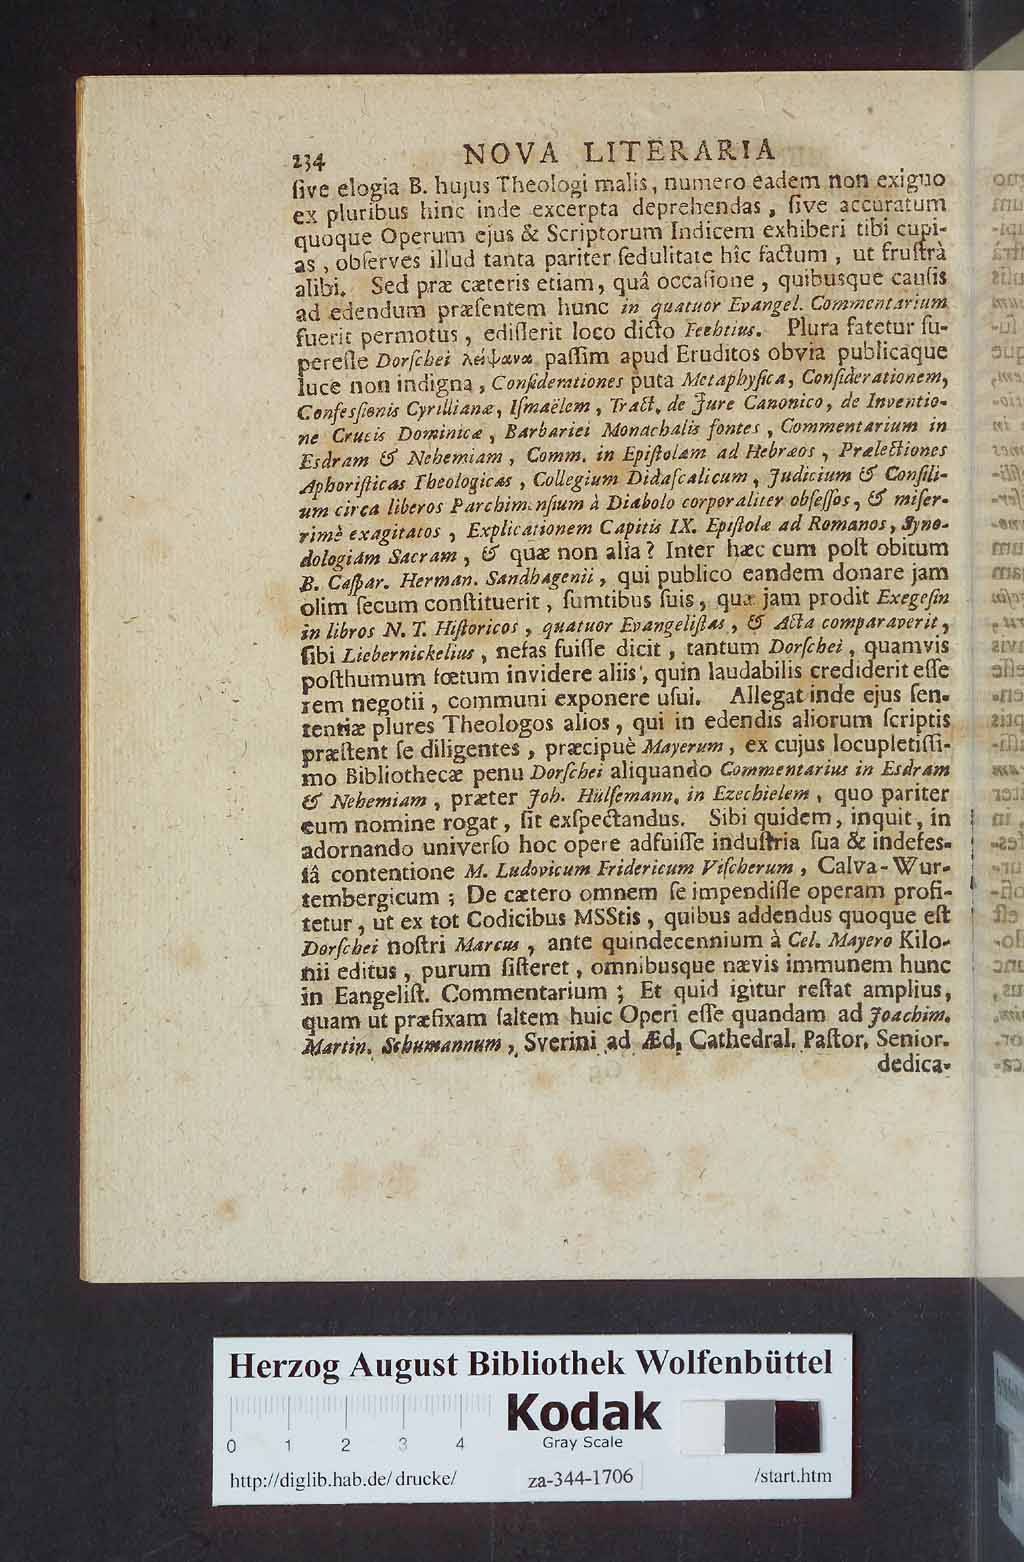 234 NOVA LITERARIA
ſive elogia B. hujus Theologi malis, numero eadem non exiguo
ex pluribus hinc inde excerpta deprehendas, ſive accuratum
quoque Operum ejus & Scriptorum Indicem exhiberi tibi cupi-
as, obſerves illud tanta pariter ſedulitate hîc factum, ut fruſtrà
alibi. Sed præ cæteris etiam, quâ occaſione, quibusque cauſis
ad edendum præſentem hunc in quatuor Evangel. Commentarium
fuerit permotus, ediſſerit loco dicto Fechtius. Plura fatetur ſu-
pereſſe Dorſchei λείψανα paſſim apud Eruditos obvia publicáque
luce non indigna, Conſiderationes puta Metaphyſica, Conſiderationem,
Confesſionis Cyrillianæ, Iſmaëlem, Tract. de Jure Canonico, de Inventio-
ne Crucis Dominicæ, Barbariei Monachalis fontes, Commentarium in
Esdram & Nehemiam, Comm. in Epiſtolam ad Hebræos, Prælectiones
Aphoriſticas Theologicas, Collegium Didaſcalicum, Judicium & Conſili-
um circa liberos Parchimenſium à Diabolo corporaliter obſeſſos, & miſer-
rimè exagitatos, Explicationem Capitis IX. Epiſtolæ ad Romanos, Syno-
dologiam Sacram, & quæ non alia? Inter hæc cum poſt obitum
B. Caſpar. Herman. Sandhagenii, qui publico eandem donare jam
olim ſecum conſtituerit, ſumtibus ſuis, quæ jam prodit Exegeſin
in libros N. T. Hiſtoricos, quatuor Evangeliſtas, & Acta comparaverit,
ſibi Liebernickelius, nefas fuiſſe dicit, tantum Dorſchei, quamvis
poſthumum fœtum invidere aliis, quin laudabilis crediderit eſſe
rem negotii, communi exponere uſui. Allegat inde ejus ſen-
tentiæ plures Theologos alios, qui in edendis aliorum ſcriptis
præſtent ſe diligentes, præcipuè Mayerum, ex cujus locupletiſſi-
mo Bibliothecæ penu Dorſchei aliquando Commentarius in Esdram
& Nehemiam, præter Joh. Hülſemann. in Ezechielem, quo pariter
eum nomine rogat, ſit exſpectandus. Sibi quidem, inquit, in
adornando univerſo hoc opere adfuiſſe induſtria ſua & indefes-
ſâ contentione M. Ludovicum Fridericum Viſcherum, Calva-Wur-
tembergicum; De cætero omnem ſe impendiſſe operam profi-
tetur, ut ex tot Codicibus MSStis, quibus addendus quoque eſt
Dorſchei noſtri Marcus, ante quindecennium à Cel. Mayero Kilo-
nii editus, purum ſiſteret, omnibusque nævis immunem hunc
in Eangeliſt. Commentarium; Et quid igitur reſtat amplius,
quam ut præfixam ſaltem huic Operi eſſe quandam ad Joachim.
Martin. Schumannum, Sverini ad Æd. Cathedral. Paſtor. Senior.
dedica-
Herzog August Bibliothek Wolfenbüttel
Kodak
Gray Scale
0 1 2 3 4
http://diglib.hab.de/drucke/ za-344-1706 /start.htm